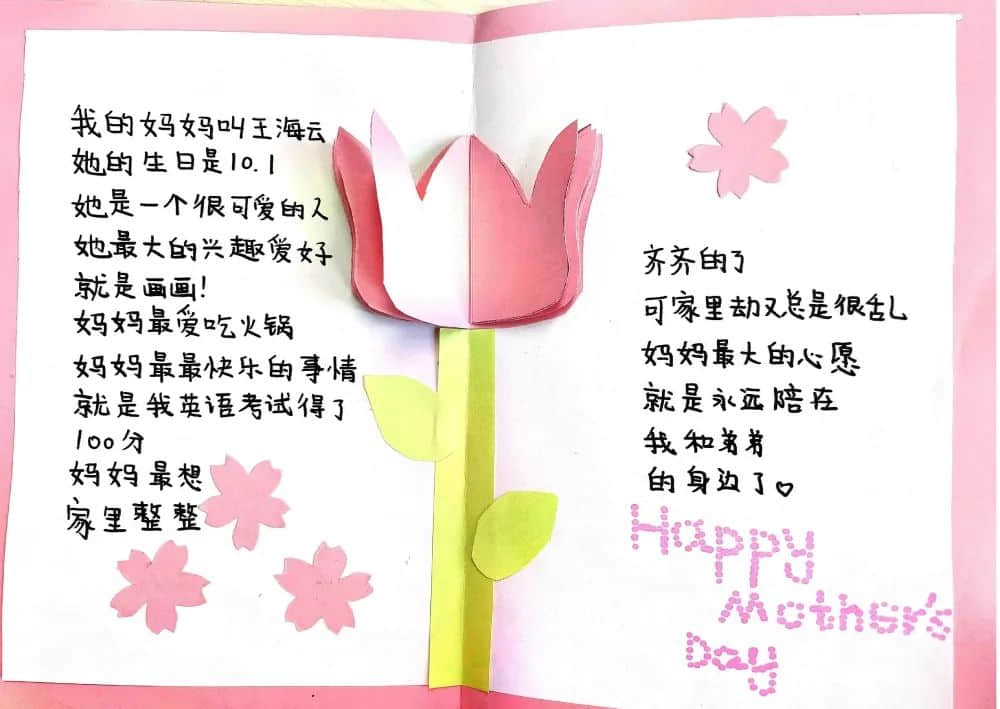 我的妈妈叫王海云
她的生日是10.1
她是一个很可爱的人
她最大的兴趣爱好
就是画画!
妈妈最爱吃火锅
妈妈最最快乐的事情
就是我英语考试得了
100分
妈妈最想
家里整整
齐齐的了
可家里却又总是很乱
妈妈最大的心愿
就是永远陪在
我和弟弟
的身边了♡
Happy
Mother's
Day